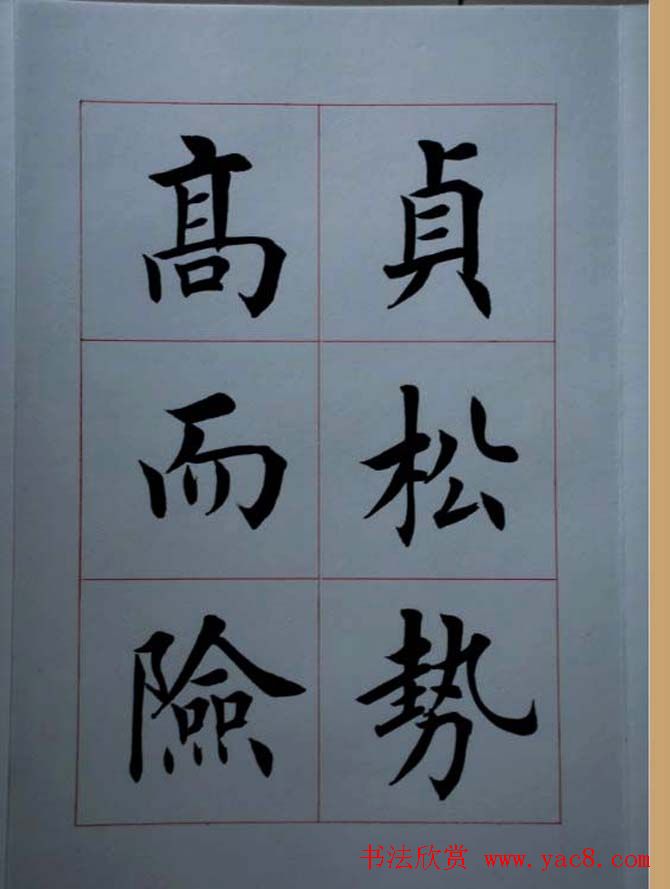 貞松勢
髙而險
书法欣赏 www.yac8.com